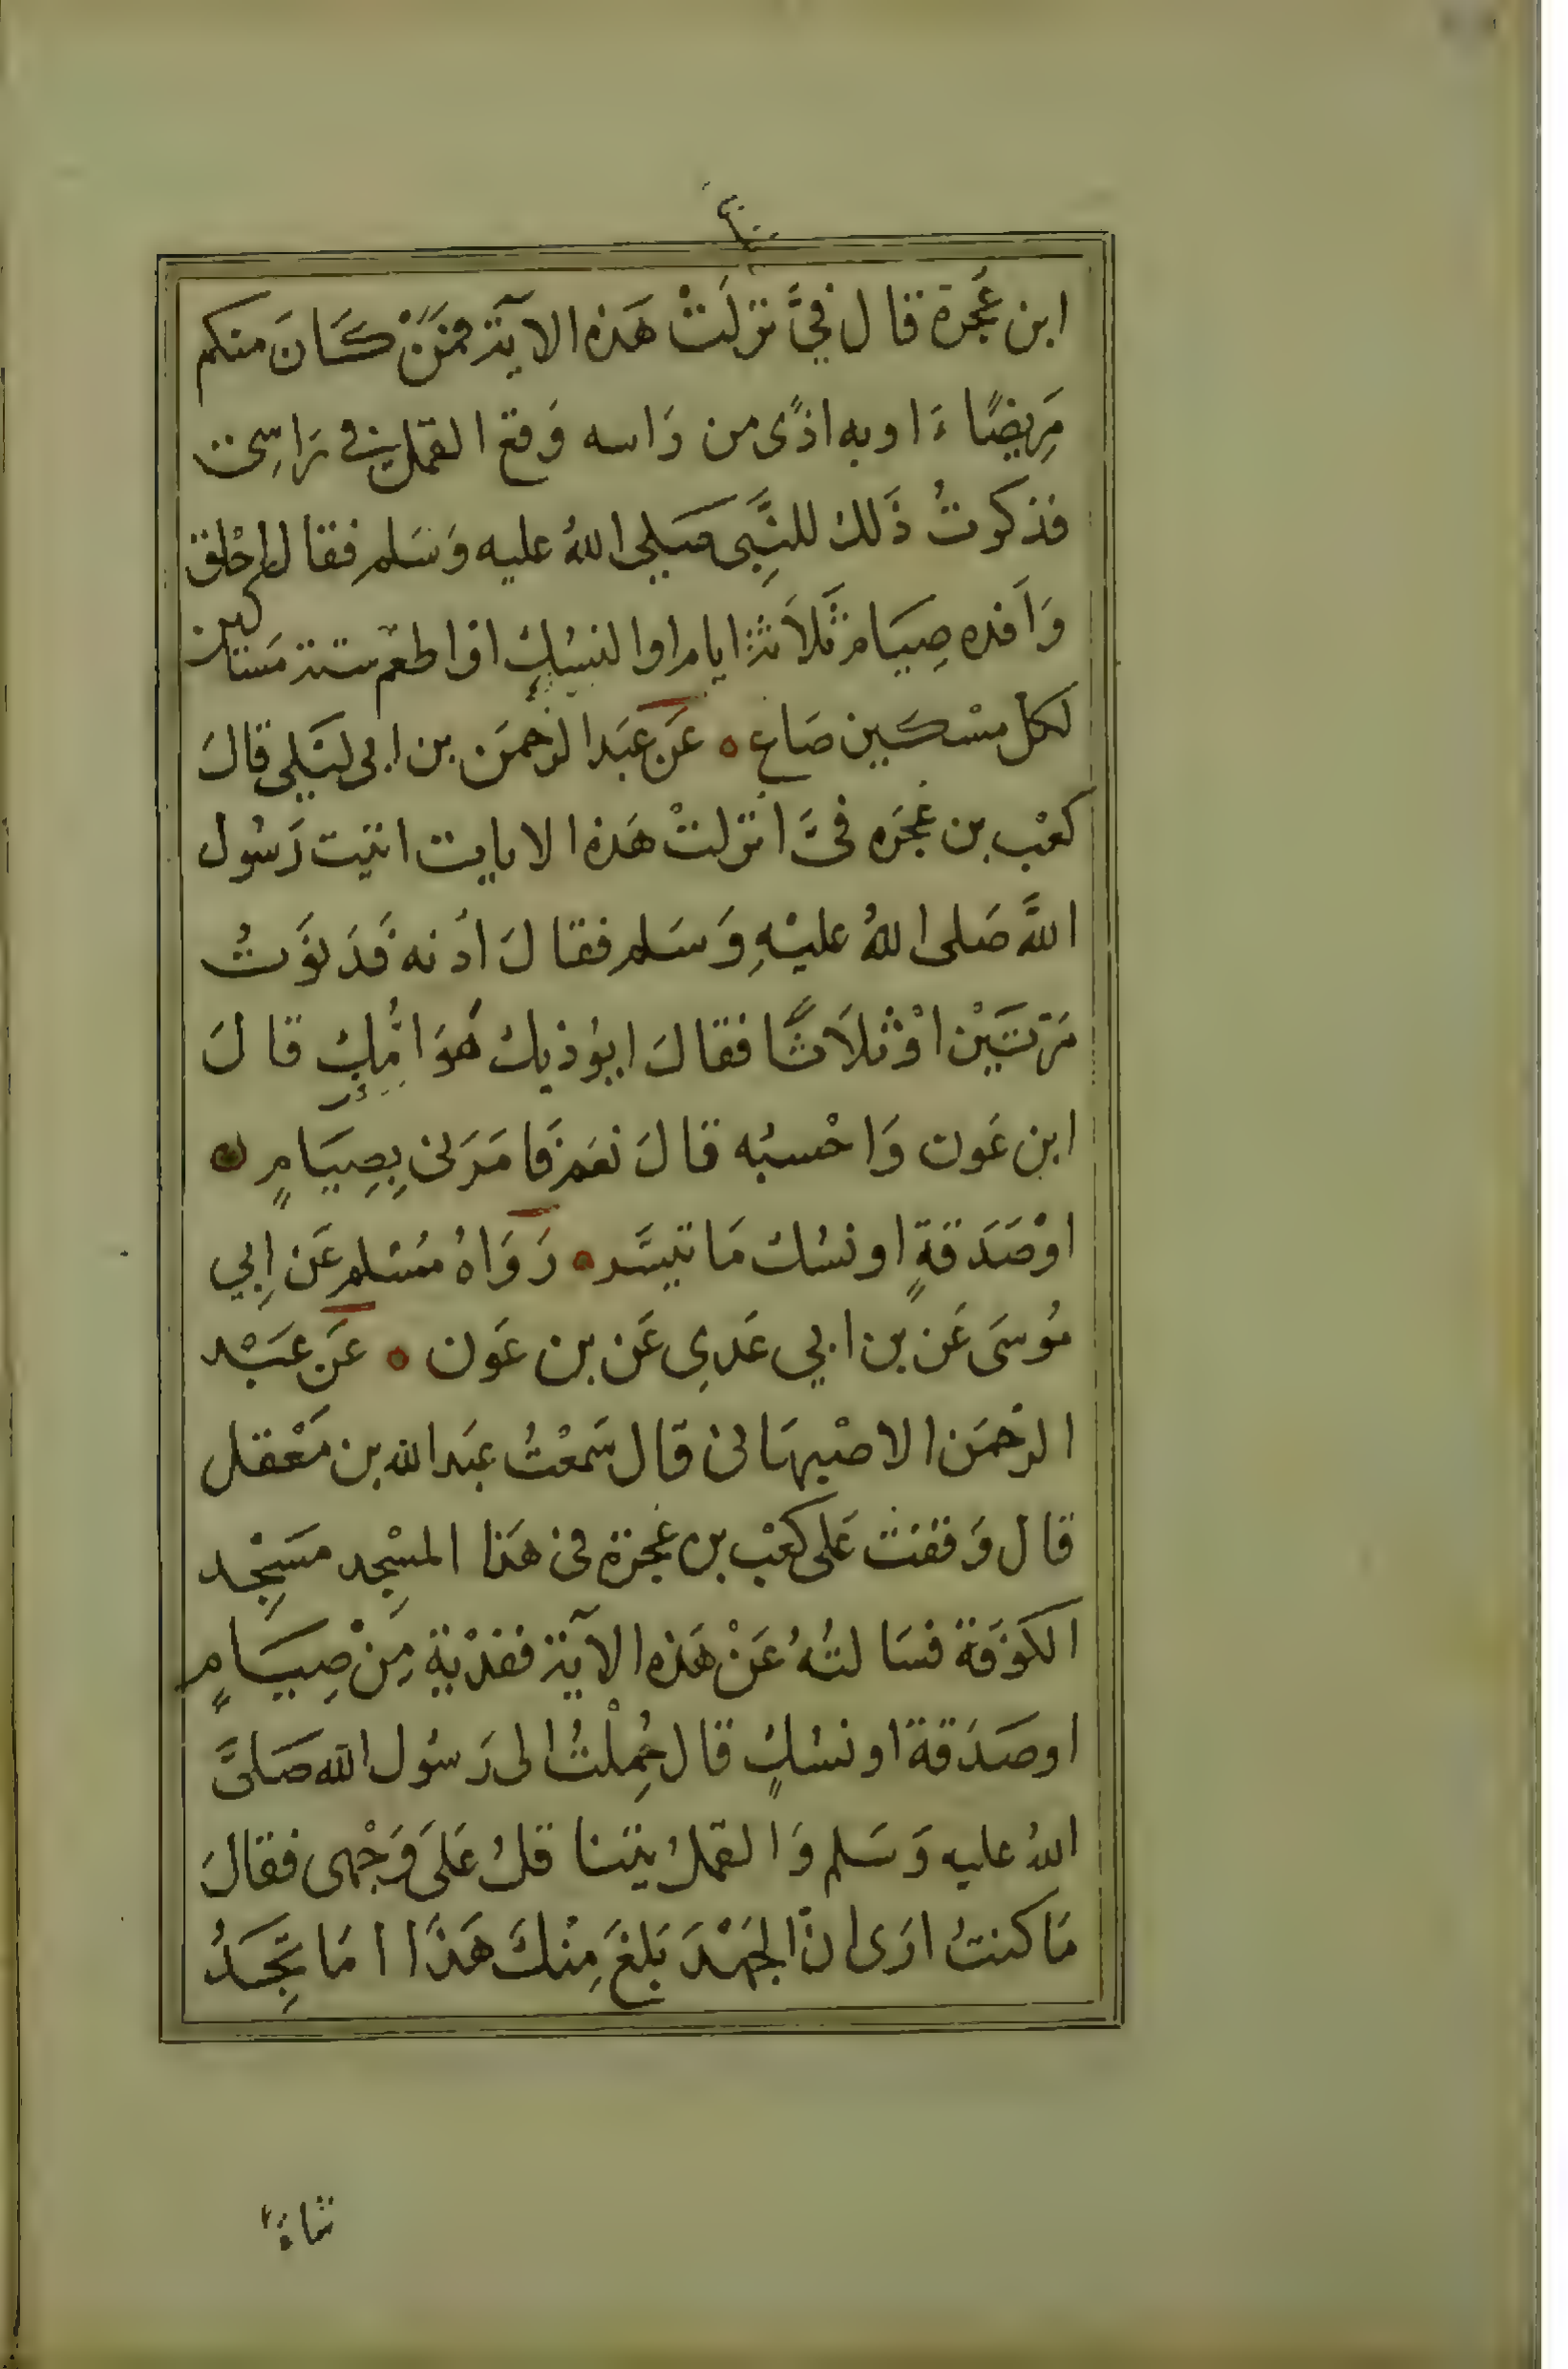 ابن عُجرة قال فيَّ نزلَتْ هَذه الآية فمَنَ كَانَ منكم
مَرِيضًا ءَاوبه اذًى من رَاسه وَقع القمل في رَاسِى
فذكرتُ ذَلك للنَّبِى صَلي اللهُ عليه وَسَلم فقال احْلق
وَافده صِيَام ثَلاَثة ايام اوالنسُكٍ اواطعم ستة مسَاكين
لكل مسْكين صَاع ه عَن عَبَد الرحمَن بن ابى ليَلي قالَ
كعْب بن عُجَره فىَّ انزلتْ هَذه الايات اتيت رَسُول
اللَّه صَلى اللهُ عليْهِ وَسَلم فقالَ ادُنه فَدَنوَتُ
مَرّتيَنْ اوْثلاَثًا فقالَ ايوُذيك هَوَامُّكِ قالَ
ابن عَون وَاحْسبُه قالَ نعَم فَامَرَنى بِصِيَامٍ ه
اوْصَدَقةٍ اونسُك مَاتيسَّر ه رَوَاهُ مُسْلم عَن اِبي
مُوسَى عَن بن ابي عَدي عَن بن عَون ه عَن عبَد
الرحمَن الاصْبهَانى قال سَمعْتُ عبَدالله بن مَعْقل
قال وَقفت عَلى كعْب بن عُجرَة فى هَذا المسْجِد مسَجِد
الكوَفة فسَالتُهُ عَنْ هَذه الآية ففدْيةٍ مِنْ صِيَامٍ
اوصَدَقة اونسُكٍ قال حُمِلْتُ الى رَسُول الله صَلىَّ
اللهُ عليه وَسَلم وَالقملُ يتنا قلُ عَلىَ وَجْهى فقالَ
مَاكنتُ ارَى انّ الجَهْدَ بَلغَ مِنْكَ هَذَا امَا تَجِدُ
شاةً